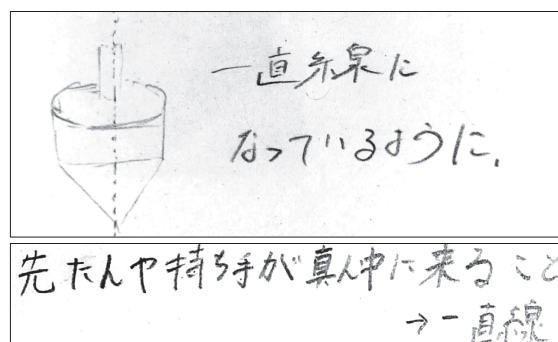 一直線に
なっているように.
先たんや持ち手が真ん中に来ること
→一直線